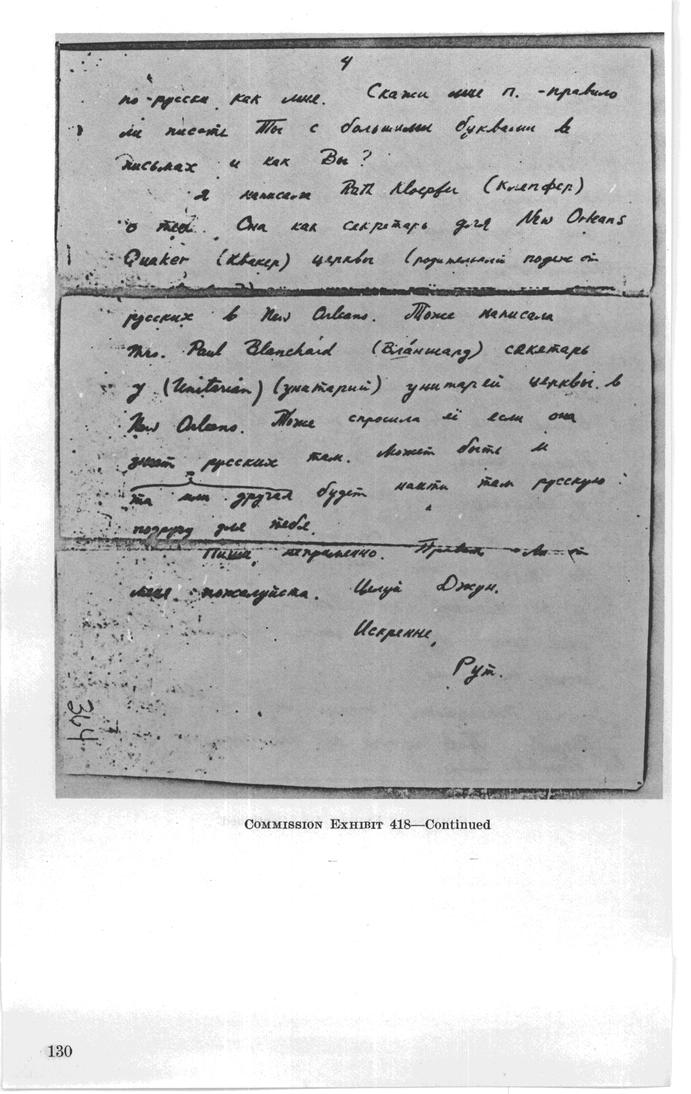 4
по-русски как мне. Скажи мне п. -правило
ли писать Ты с большими буквами в
письмах и как Вы?
Я написала Ruth Kloepfer (Клепфер)
о тебе. Она как секретарь для New Orleans
Quaker (Квакер) церквы
русских в New Orleans. Тоже написала
Mrs. Paul Blanchard (Бланшард) секетарь
у (Unitarian) (унитарий) унитарей церквы в
New Orleans. Тоже спросила её если она
знает русских там. Может быть и
та или другая будет найти там русскую
подругу для тебя.
Пиши, непременно. Привет
меня пожалуйста. Целуй Джун.
Искренне,
Рут.
364
COMMISSION EXHIBIT 418—Continued
130